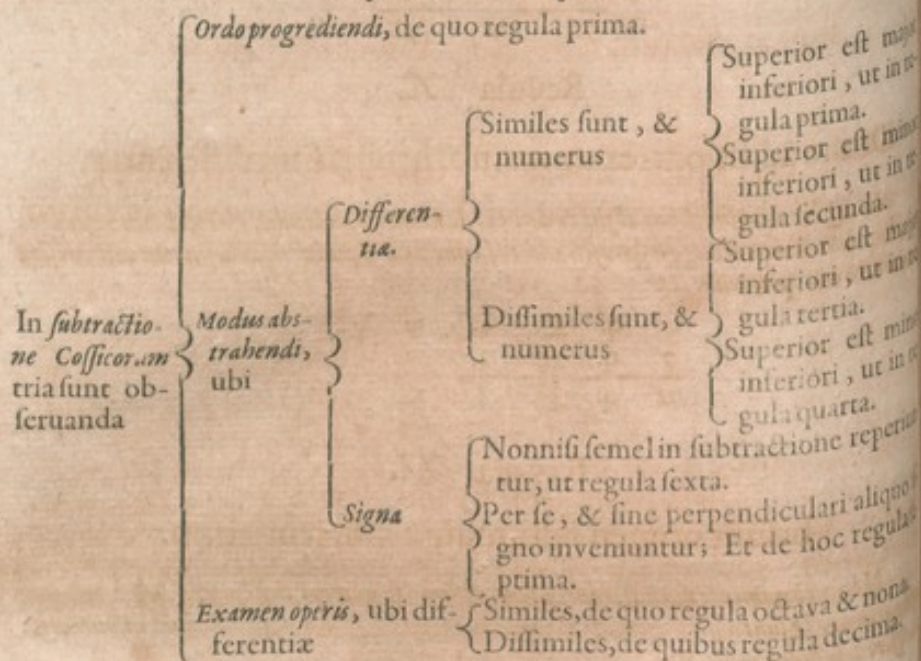 Ordo progrediendi, de quo regula prima.
In subtractio-
ne Cossicorum
tria sunt ob-
seruanda
Modus abs-
trahendi,
ubi
Differen-
tiæ.
Similes sunt, &
numerus
Superior est
inferiori, ut in
gula prima.
Superior est
inferiori, ut in
gula secunda.
Dissimiles sunt, &
numerus
Superior est
inferiori, ut in
gula tertia.
Superior est
inferiori, ut in
gula quarta.
Signa
Nonnisi semel in subtractione
tur, ut regula sexta.
Per se, & sine perpendiculari aliquo
gno inveniuntur; Et de hoc regula
prima.
Examen operis, ubi dif-
ferentiæ
Similes, de quo regula octava & nona.
Dissimiles, de quibus regula decima.